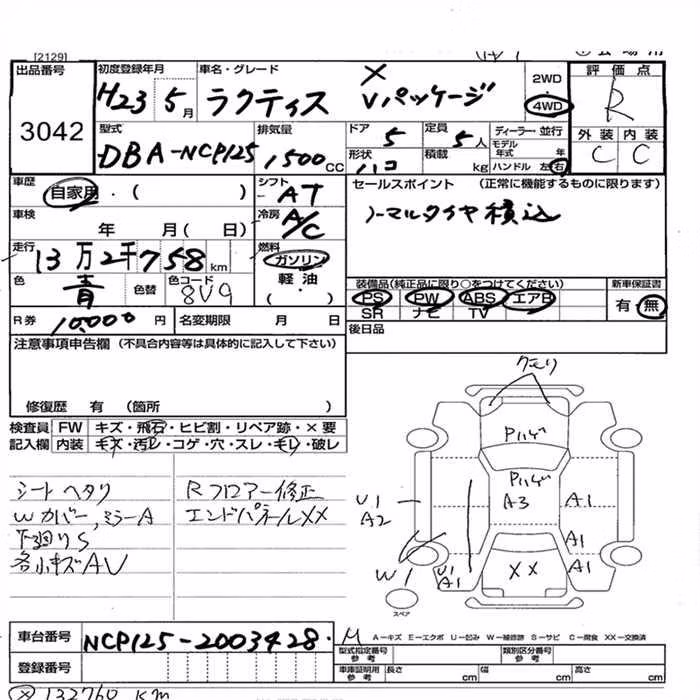 [2129]
出品番号
3042
初度登録年月
H23 5月
車名・グレード
ラクティス X Vパッケージ
2WD
4WD
評価点
R
外装 内装
C C
型式
DBA-NCP125
排気量
1500 CC
ドア 5
定員 5人
形状 ハコ
積載 kg
ディーラー・並行
モデル年式 年
ハンドル 左 右
車歴
自家用・( )
シフト AT
車検
年 月( 日)
冷房 A/C
走行
13万2千758km
燃料
ガソリン
軽油・
( )
色 青
色替
色コード 8V9
R券 10,000円
名変期限 月 日
セールスポイント (正常に機能するものに限ります)
ノーマルタイヤ積込
装備品(純正品に限り○をつけてください)
PS PW ABS エアB
SR ナビ TV
新車保証書
有・無
後日品
注意事項申告欄(不具合内容等は具体的に記入して下さい)
修復歴 有 (箇所 )
検査員記入欄
FW キズ・飛石・ヒビ割・リペア跡・×要
内装 キズ・汚レ・コゲ・穴・スレ・キレ・破レ
シートヘタリ
Wカバー,ミラーA
下廻りS
各小キズAU
Rフロアー修正
エンドパネルXX
クモリ
Pハゲ
Pハゲ
A3
U1
A2
A1
A1
A1
W1
U1
A1
XX
スペア
車台番号
NCP125-2003428.
登録番号
A-キズ E-エクボ U-凹み W-補修跡 S-サビ C-腐食 XX-交換済
型式指定番号
参考
類別区分番号
参考
車庫証明用
参考
長さ cm 幅 cm 高さ cm
132760 Km